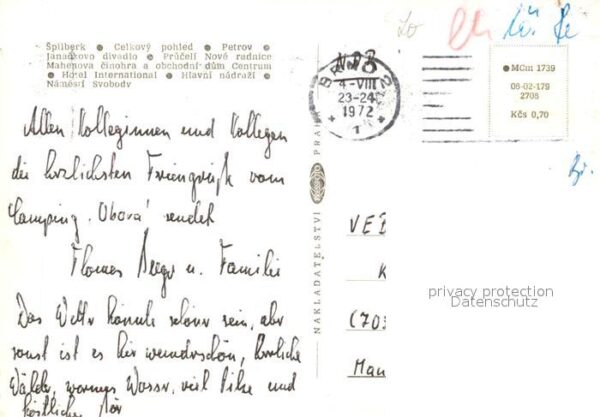 Špilberk ● Celkový pohled ● Petrov ●
Janáčkovo divadlo ● Průčelí Nové radnice
Mahenova činohra a obchodní dům Centrum
● Hotel International ● Hlavní nádraží ●
Náměstí Svobody
Allen Kolleginnen und Kollegen
die herzlichsten Feriengrüße vom
Camping "Obora" sendet
Thomas u. Familie
Das Wetter könnte schöner sein, aber
sonst ist es hier wunderschön, herrliche
Wälder, warmes Wasser, viel Pilze und
NAKLADATELSTVÍ
PRAHA
NDR
BRNO 2
4-VIII
23-24
1972
1
MCm 1739
08-02-179
2705
Kčs 0,70
VEB
K
(703
privacy protection
Datenschutz